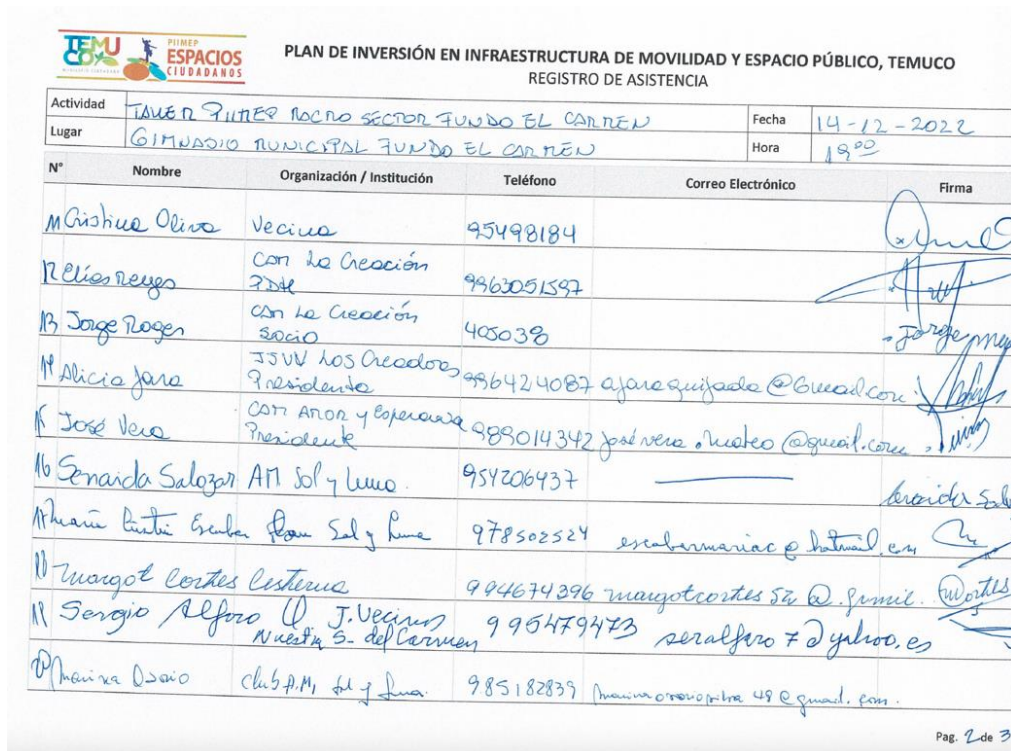 TEMUCO
PIIMEP
ESPACIOS
CIUDADANOS
PLAN DE INVERSIÓN EN INFRAESTRUCTURA DE MOVILIDAD Y ESPACIO PÚBLICO, TEMUCO
REGISTRO DE ASISTENCIA
Actividad TALLER PIIMEP MACRO SECTOR FUNDO EL CARMEN Fecha 14-12-2022
Lugar GIMNASIO MUNICIPAL FUNDO EL CARMEN Hora 19:00
N° Nombre Organización / Institución Teléfono Correo Electrónico Firma
11 Cristina Oliva Vecina 95498184
12 Elías Reyes Com La Creación PDH 9963051597
13 Jorge Roger com La Creación Socio 405038 Jorge
14 Alicia Jara JJVV Los Creadores Presidenta 996424087 ajaraquijada@Gmail.com
15 José Vera Com Amor y Esperanza Presidente 989014342 josévera.mateo@gmail.com
16 Senaida Salazar AM Sol y Luna. 954206437
17 María Escobar Sol y Luna 978502524 escobarmariac@hotmail.com
18 Margot Cortes Cisterna 994674396 margotcortes52@.gmil. Cortes
19 Sergio Alfaro U J. Vecinos Nuestra S. del Carmen 995479473 seralfaro7@yahoo.es
20 Marina Osorio club A.M, Sol y Luna. 985182839
Pag. 2 de 3